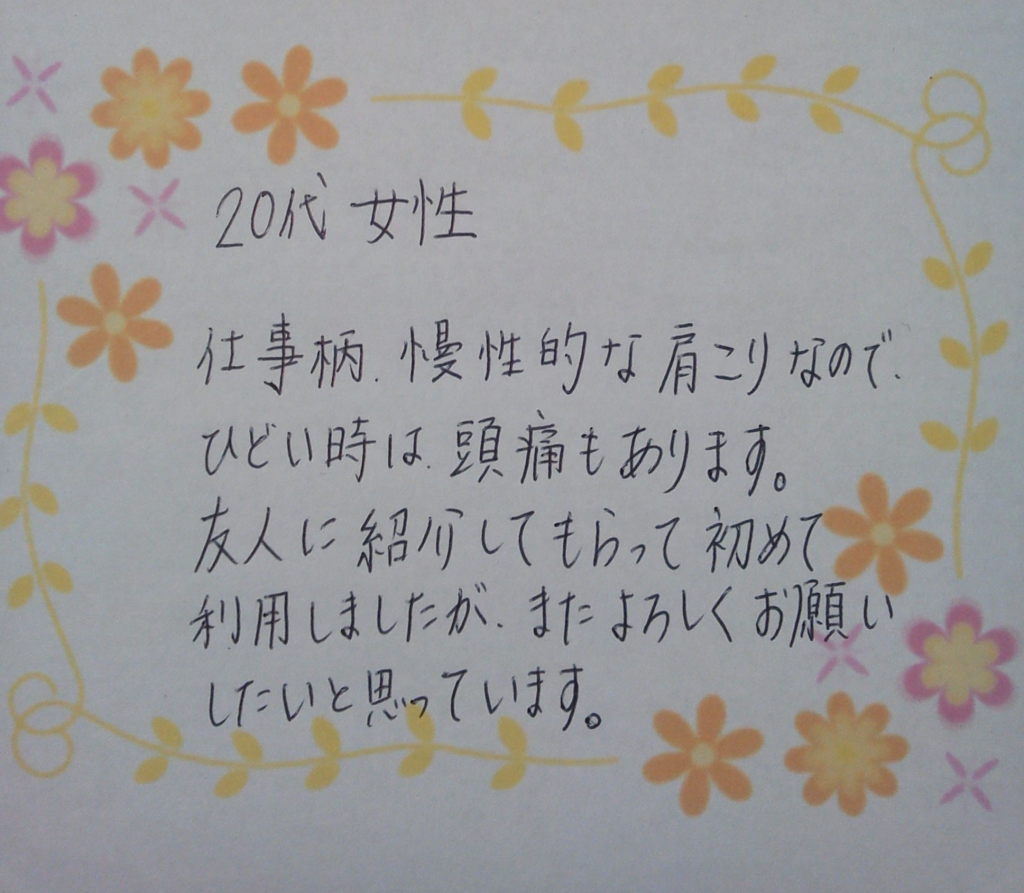 20代 女性
仕事柄、慢性的な肩こりなので、
ひどい時は、頭痛もあります。
友人に紹介してもらって初めて
利用しましたが、またよろしくお願い
したいと思っています。